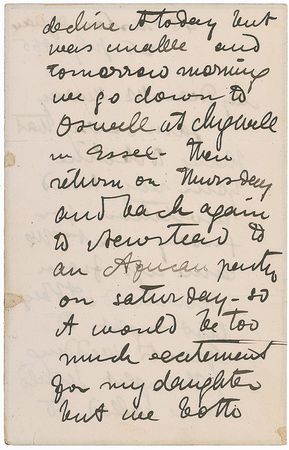 decline it today but
was unable and
tomorrow morning
we go down to
Oswell at chigwell
in Essex - then
return on Thursday
and back again
to Newstead to
an African party
on saturday - so
it would be too
much excitement
for my daughter
but we both